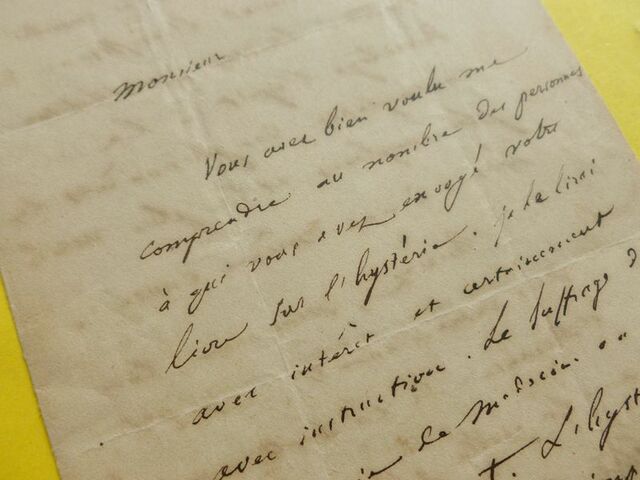 Monsieur
Vous avez bien voulu me
comprendre au nombre des personnes
à qui vous avez envoyé votre
livre sur l'hystérie. je le lirai
avec intérêt et certainement
avec instruction. Le suffrage d
de médecine
L'hyst